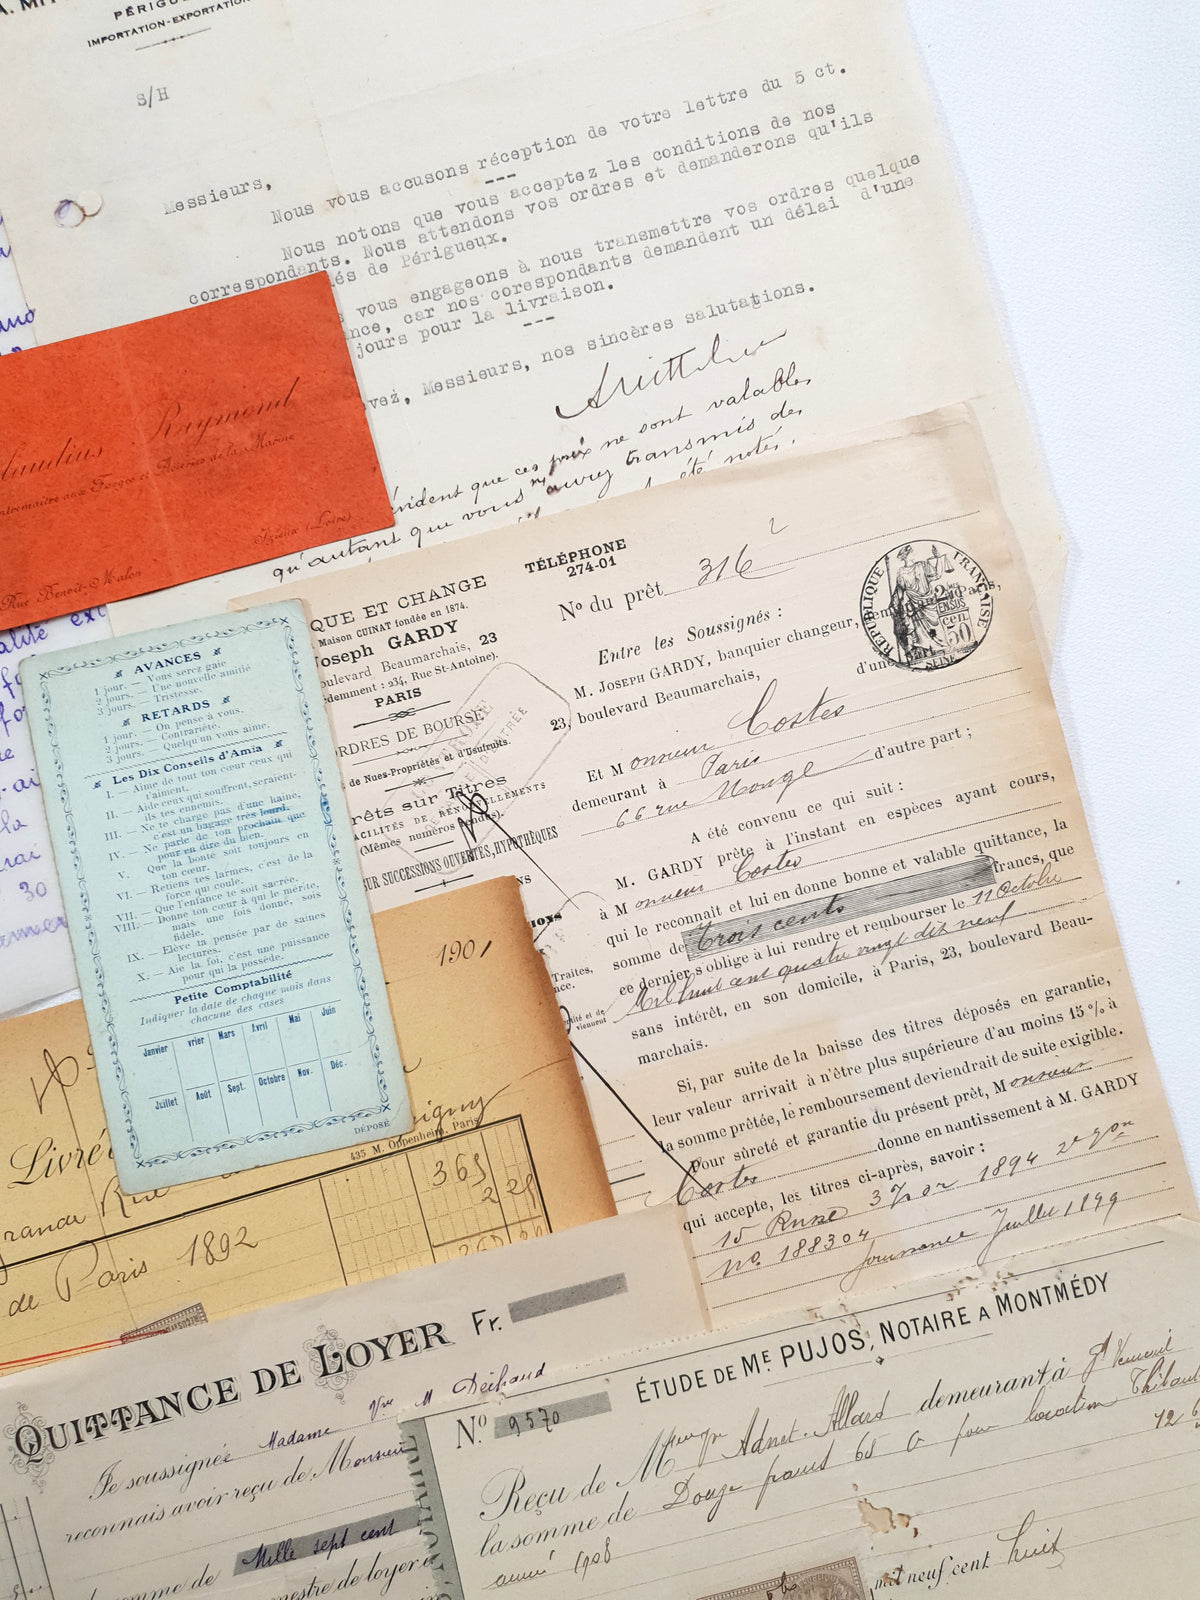 PÉRIGU
IMPORTATION-EXPORTATION
S/H
Messieurs,
Nous vous accusons réception de votre lettre du 5 ct.
---
Nous notons que vous acceptez les conditions de nos
correspondants. Nous attendons vos ordres et demanderons qu'ils
és de Périgueux.
vous engageons à nous transmettre vos ordres quelque
nce, car nos corespondants demandent un délai d'une
jours pour la livraison.
---
vez, Messieurs, nos sincères salutations.
que ces prix ne sont valables
qu'autant que vous transmis des
été notés.
Claudius Raymond
Contremaître aux Forges et Aciéries de la Marine
Izieux (Loire)
Rue Benoît-Malon
AVANCES
1 jour. — Vous serez gaie
2 jours. — Une nouvelle amitié
3 jours. — Tristesse.
RETARDS
1 jour. — On pense à vous.
2 jours. — Contrariété.
3 jours. — Quelqu'un vous aime.
Les Dix Conseils d'Amia
I. — Aime de tout ton cœur ceux qui
t'aiment.
II. — Aide ceux qui souffrent, seraient-
ils tes ennemis.
III. — Ne te charge pas d'une haine,
c'est un bagage très lourd.
IV. — Ne parle de ton prochain que
pour en dire du bien.
V. — Que la bonté soit toujours en
ton cœur.
VI. — Retiens tes larmes, c'est de la
force qui coule.
VII. — Que l'enfance te soit sacrée.
VIII. — Donne ton cœur à qui le mérite,
mais une fois donné, sois
fidèle.
IX. — Elève ta pensée par de saines
lectures.
X. — Aie la foi, c'est une puissance
pour qui la possède.
Petite Comptabilité
Indiquer la date de chaque mois dans
chacune des cases
Janvier vrier Mars Avril Mai Juin
Juillet Août Sept. Octobre Nov. Déc.
DÉPOSÉ
QUE ET CHANGE
Maison CUINAT fondée en 1874.
Joseph GARDY
oulevard Beaumarchais, 23
édemment : 234, Rue St-Antoine).
PARIS
ORDRES DE BOURSE
de Nues-Propriétés et d'Usufruits.
rêts sur Titres
ACILITÉS DE RENOUVELLEMENTS
(Mêmes numéros rendus).
SUR SUCCESSIONS OUVERTES, HYPOTHÈQUES
TÉLÉPHONE
274-01
N° du prêt 316
RÉPUBLIQUE FRANÇAISE
SEINE
Entre les Soussignés :
M. JOSEPH GARDY, banquier changeur,
23, boulevard Beaumarchais, d'une part
Et Monsieur Costes
demeurant à Paris d'autre part ;
66 rue Monge
A été convenu ce qui suit :
M. GARDY prête à l'instant en espèces ayant cours,
à Monsieur Costes
qui le reconnait et lui en donne bonne et valable quittance, la
somme de Trois cents francs, que
ce dernier s'oblige à lui rendre et rembourser le 11 Octobre
Mil huit cent quatre vingt dix neuf
sans intérêt, en son domicile, à Paris, 23, boulevard Beau-
marchais.
Si, par suite de la baisse des titres déposés en garantie,
leur valeur arrivait à n'être plus supérieure d'au moins 15 % à
la somme prêtée, le remboursement deviendrait de suite exigible.
Pour sûreté et garantie du présent prêt, Monsieur
Costes donne en nantissement à M. GARDY
qui accepte, les titres ci-après, savoir :
15 Russe 3% or 1894
no. 188304
Jouissance Juillet 1899
1901
Livré
435 M. Oppenheim, Paris
365
2 25
de Paris 1892
QUITTANCE DE LOYER Fr.
Je soussignée Madame Vve
reconnais avoir reçu de Monsieur
Mille sept cent
ÉTUDE DE ME PUJOS, NOTAIRE A MONTMÉDY
N° 9570
Reçu de M Adnet-Allard demeurant à
la somme de Douze francs 65 c pour location
12 6
année 1908
mil neuf cent huit